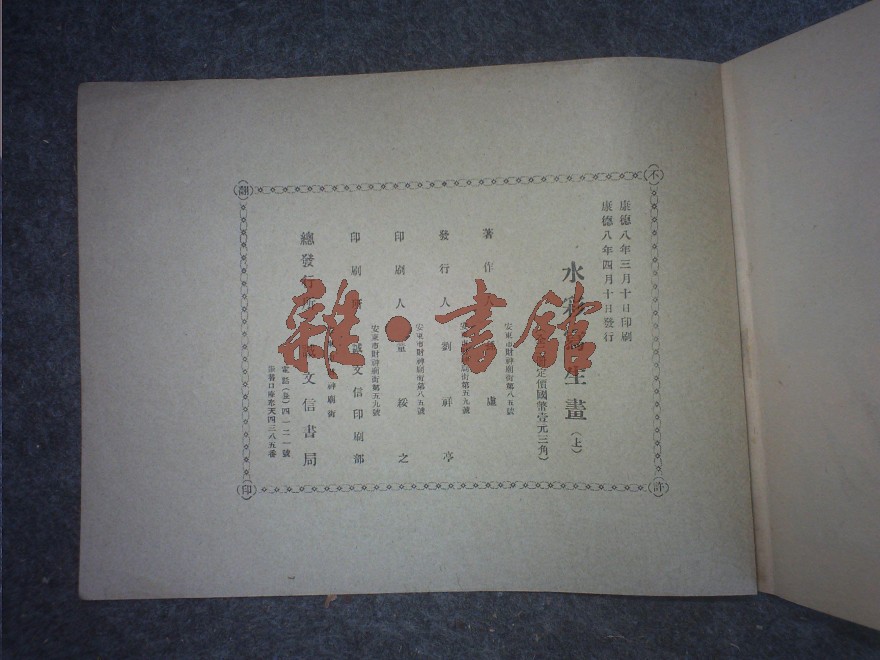 不許翻印
康德八年三月十日印刷
康德八年四月十日發行
水彩寫生畫(上)
定價國幣壹元三角)
安東市財神廟街第八五號
著作人 盧
安東市財神廟街第五九號
發行人 劉祥亭
安東市財神廟街第八五號
印刷人 董綏之
安東市財神廟街第五九號
印刷所 誠文信印刷部
神廟街
總發行所 誠文信書局
電話(長)四一二一號
振替口座奉天四三八五番
雜·書館